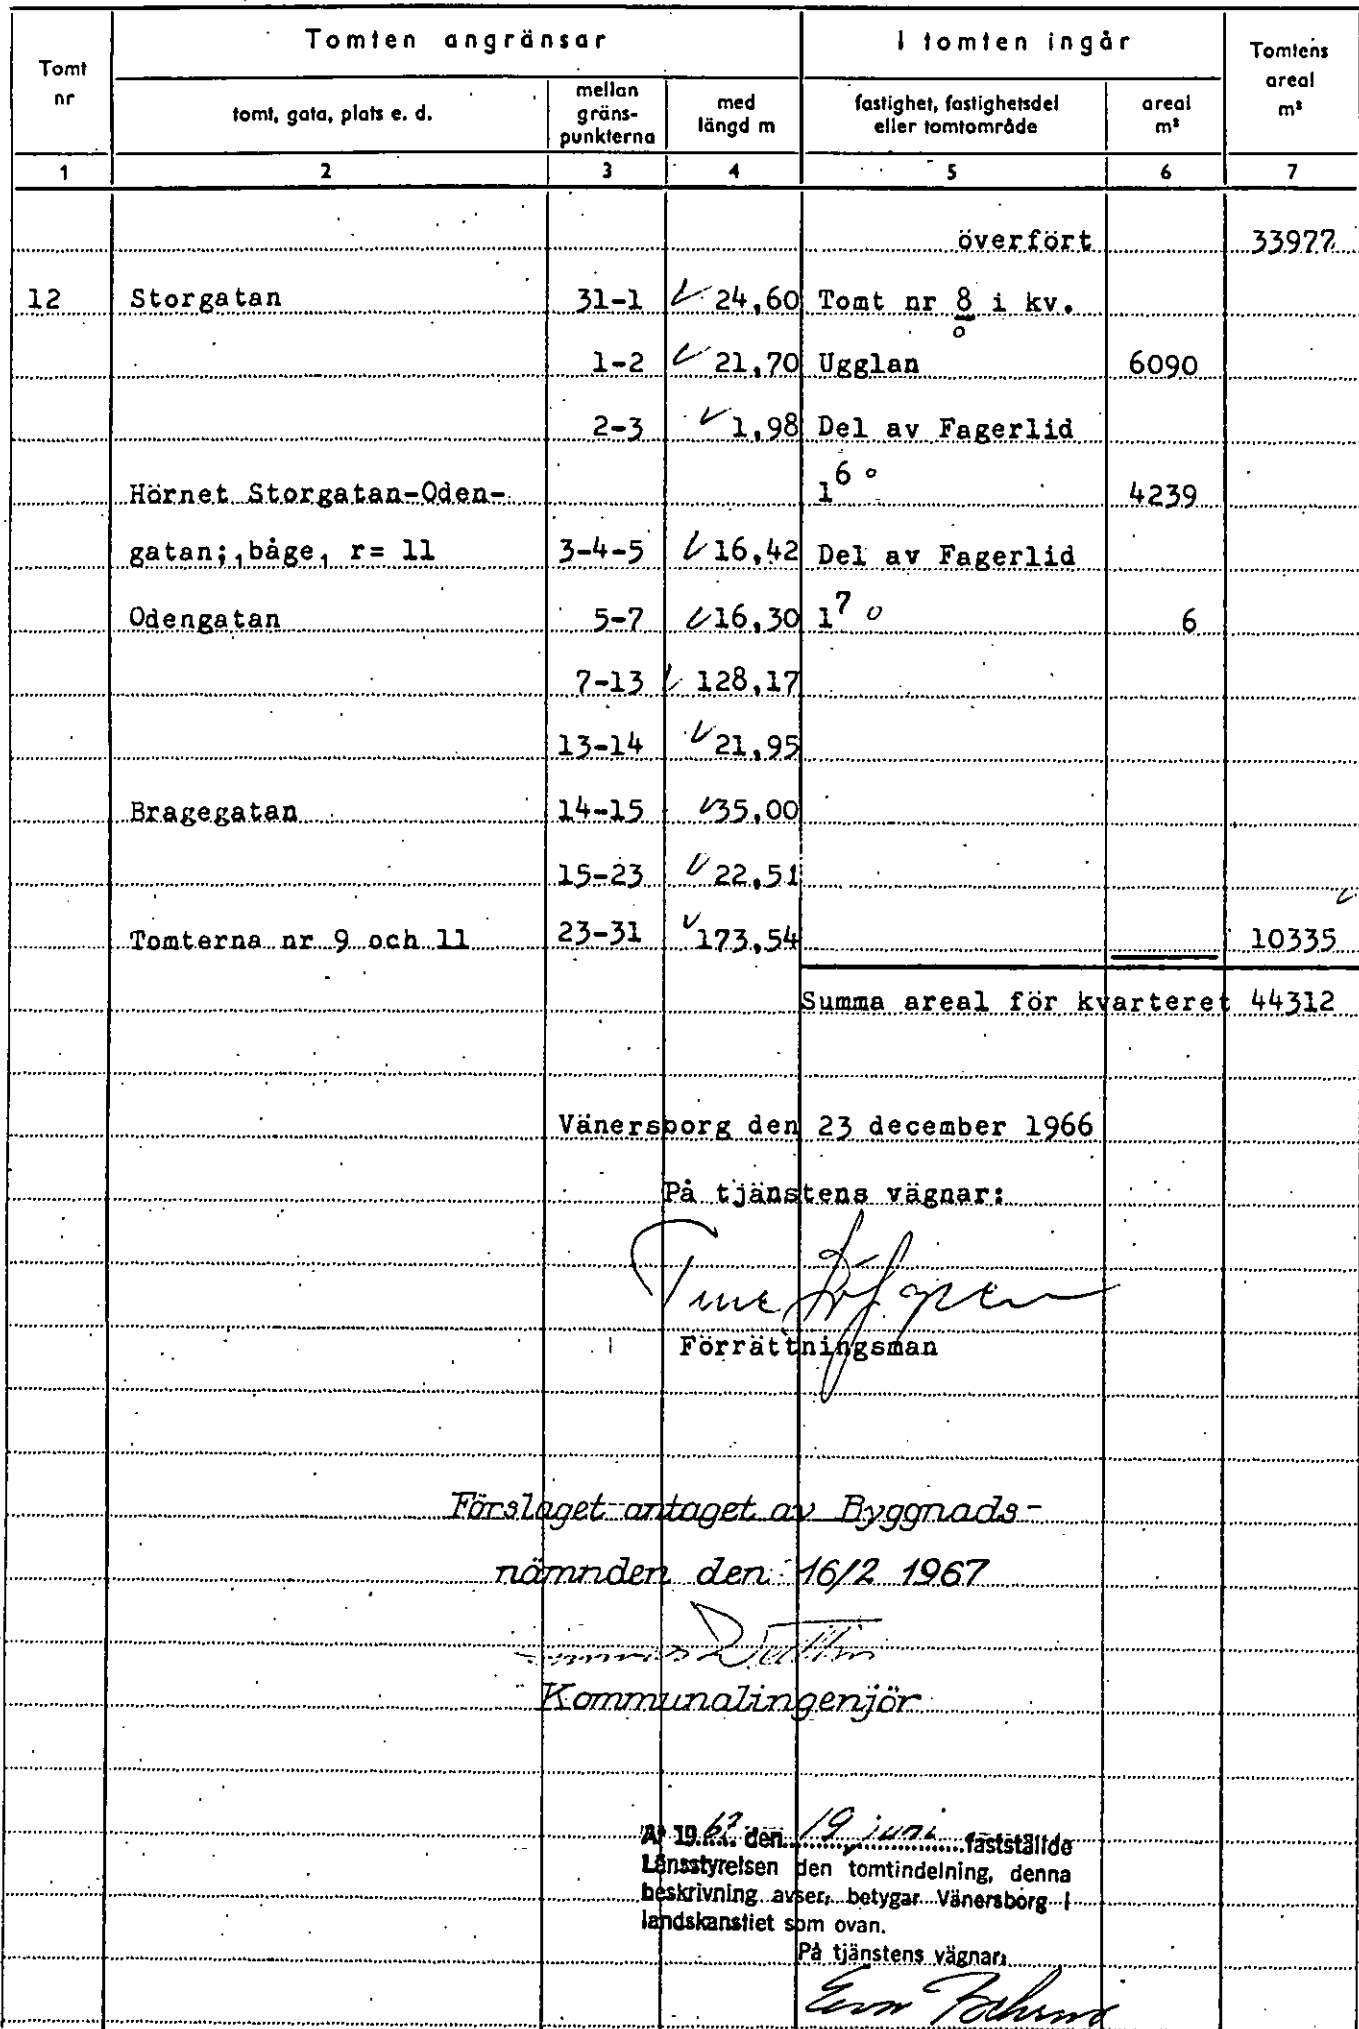 Tomt nr
Tomten angränsar
I tomten ingår
Tomtens areal m²
tomt, gata, plats e. d.
mellan gräns-punkterna
med längd m
fastighet, fastighetsdel eller tomtområde
areal m²
1 2 3 4 5 6 7
överfört 33977
12 Storgatan 31-1 24,60 Tomt nr 8 i kv.
1-2 21,70 Ugglan 6090
2-3 1,98 Del av Fagerlid
Hörnet Storgatan-Oden- 1⁶ 4239
gatan; båge, r= 11 3-4-5 16,42 Del av Fagerlid
Odengatan 5-7 16,30 1⁷ 6
7-13 128,17
13-14 21,95
Bragegatan 14-15 35,00
15-23 22,51
Tomterna nr 9 och 11 23-31 173,54 10335
Summa areal för kvarteret 44312
Vänersborg den 23 december 1966
På tjänstens vägnar:
Förrättningsman
Förslaget antaget av Byggnads-
nämnden den 16/2 1967
Kommunalingenjör
År 1967 den 19 juni fastställde
Länsstyrelsen den tomtindelning, denna
beskrivning avser, betygar Vänersborg i
landskansliet som ovan.
På tjänstens vägnar: